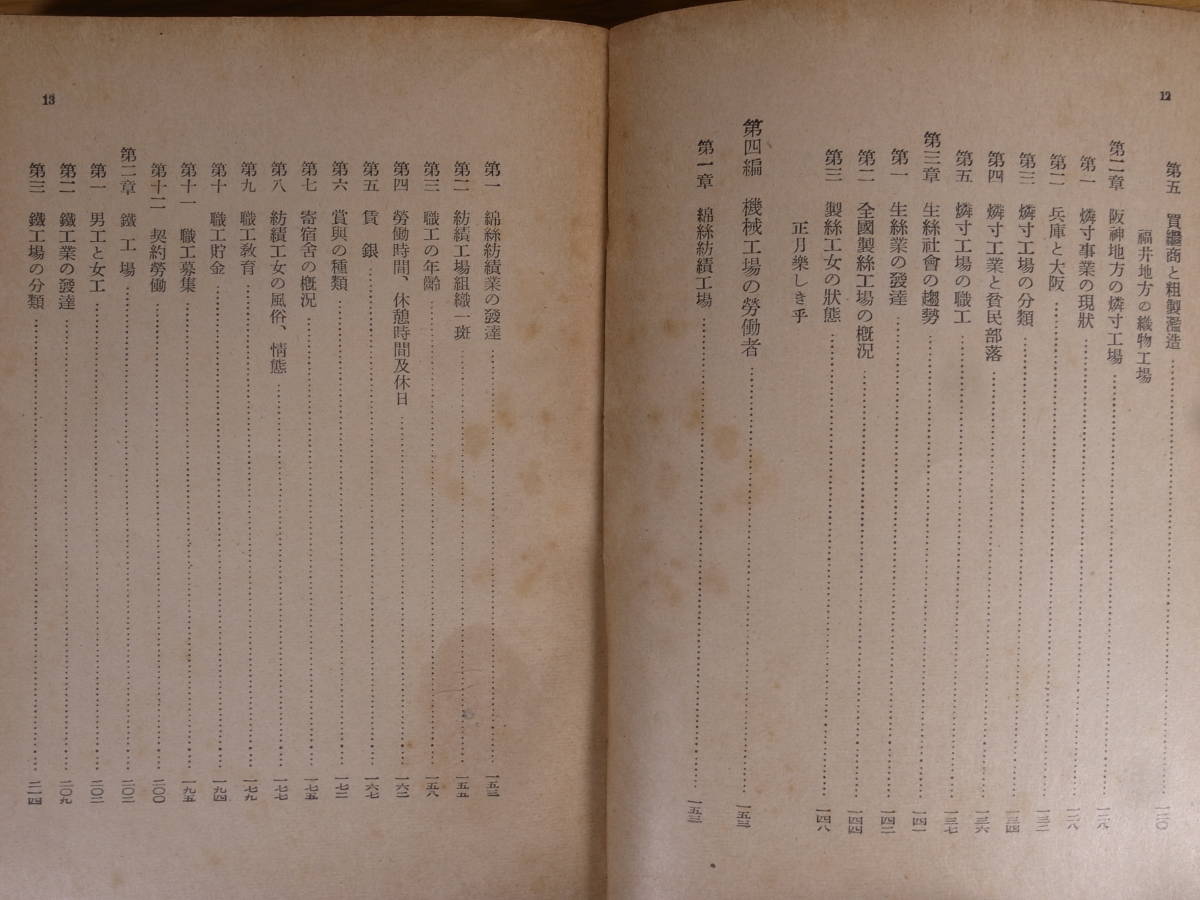 12
第五 買繼商と粗製濫造 一二〇
福井地方の織物工場
第二章 阪神地方の燐寸工場 一二八
第一 燐寸事業の現狀 一二八
第二 兵庫と大阪 一三二
第三 燐寸工場の分類 一三四
第四 燐寸工業と貧民部落 一三六
第五 燐寸工場の職工 一三七
第三章 生絲社會の趨勢 一四一
第一 生絲業の發達 一四二
第二 全國製絲工場の槪況 一四四
第三 製絲工女の狀態 一四八
正月樂しき乎
第四編 機械工場の勞働者 一五三
第一章 綿絲紡績工場 一五三
13
第一 綿絲紡績業の發達 一五三
第二 紡績工場組織一斑 一五五
第三 職工の年齡 一五八
第四 勞働時間、休憩時間及休日 一六二
第五 賃銀 一六七
第六 賞與の種類 一七二
第七 寄宿舍の槪況 一七五
第八 紡績工女の風俗、情態 一七七
第九 職工敎育 一七九
第十 職工貯金 一九四
第十一 職工募集 一九五
第十二 契約勞働 二〇〇
第二章 鐵工場 二〇二
第一 男工と女工 二〇二
第二 鐵工業の發達 二〇九
第三 鐵工場の分類 二一四